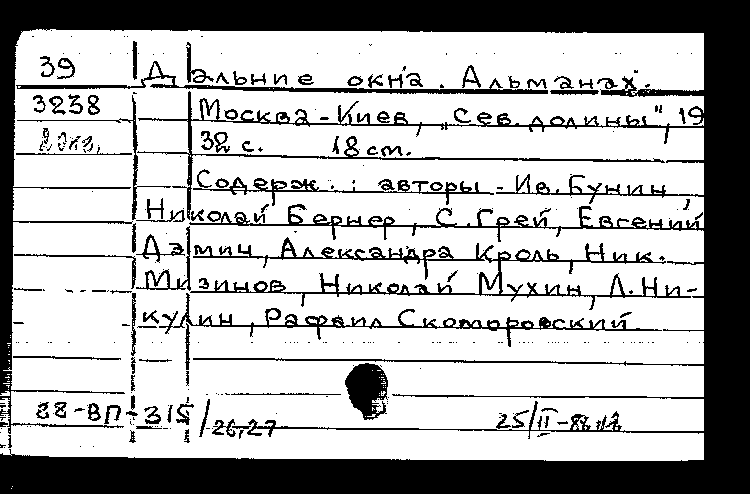 39 Дальние окна. Альманах.
3238 Москва - Киев, „Сев. долины", 19
2 экз. 32 с. 18 cm.
Содерж.: авторы - Ив. Бунин,
Николай Бернер, С. Грей, Евгений
Дэмич, Александра Кроль, Ник.
Мизинов, Николай Мухин, Л. Ни-
кулин, Рафаил Скоморовский
88-ВП-315/26,27 25/II-88